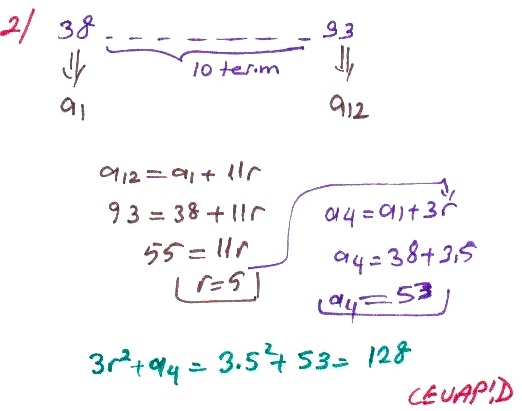 2/ 38 - - - - - - - - 93
10 terim
a1 a12
a12 = a1 + 11r
93 = 38 + 11r
55 = 11r
r = 5
a4 = a1 + 3r
a4 = 38 + 3.5
a4 = 53
3r² + a4 = 3.5² + 53 = 128
CEVAP:D